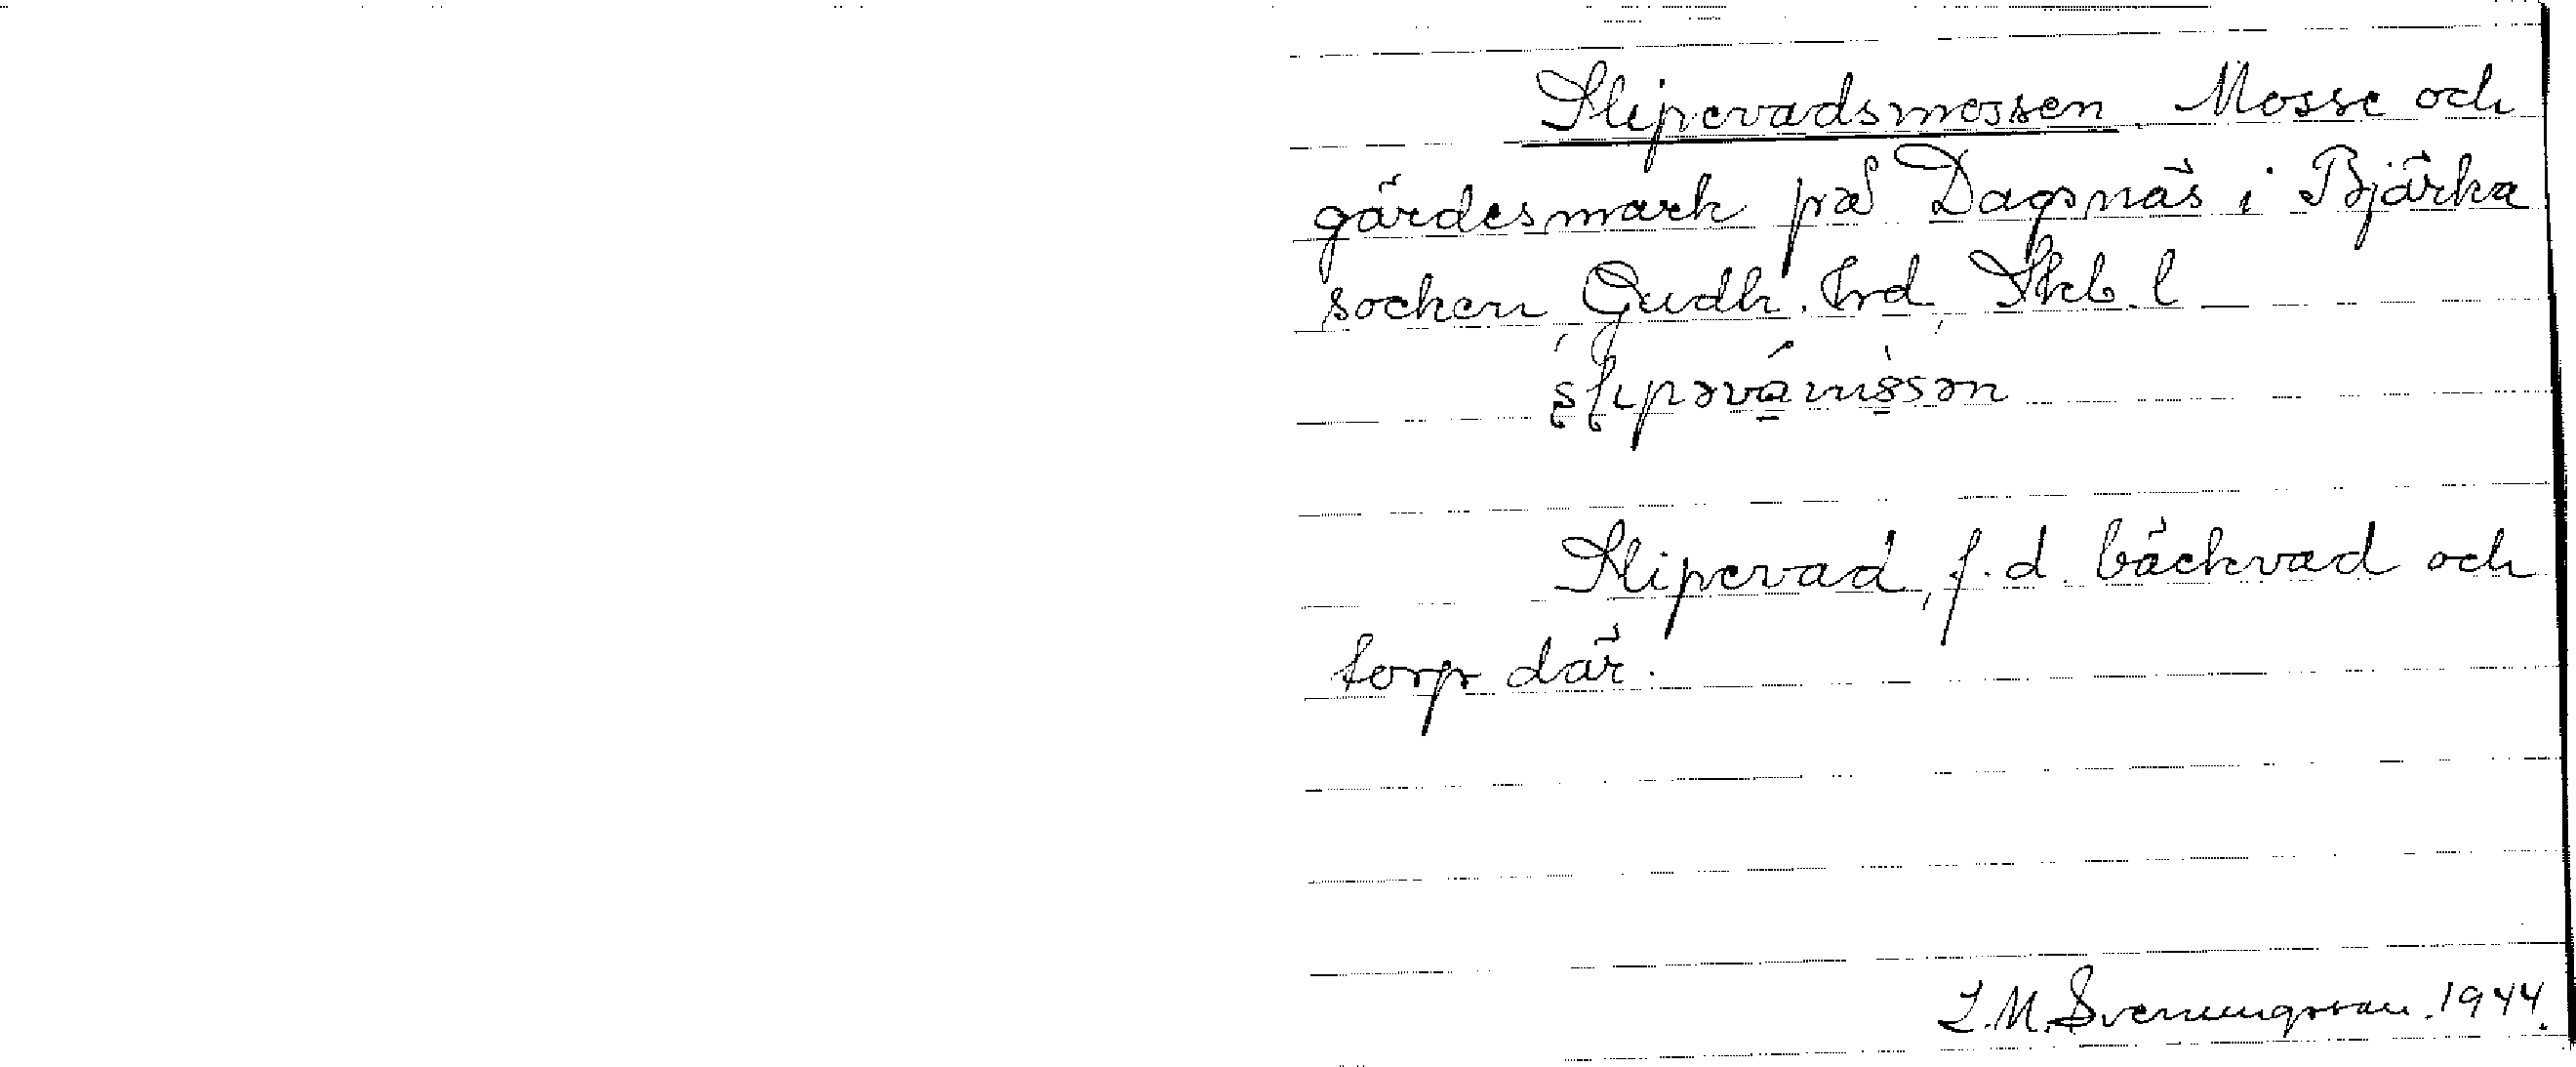 Slipevadsmossen. Mosse och
gärdesmark på Dagsnäs i Bjärka
socken, Gudh. hrd, Skb. l
Slipevad, f.d. bäckvad och
torp där.
L.M. Svenungsson. 1944.